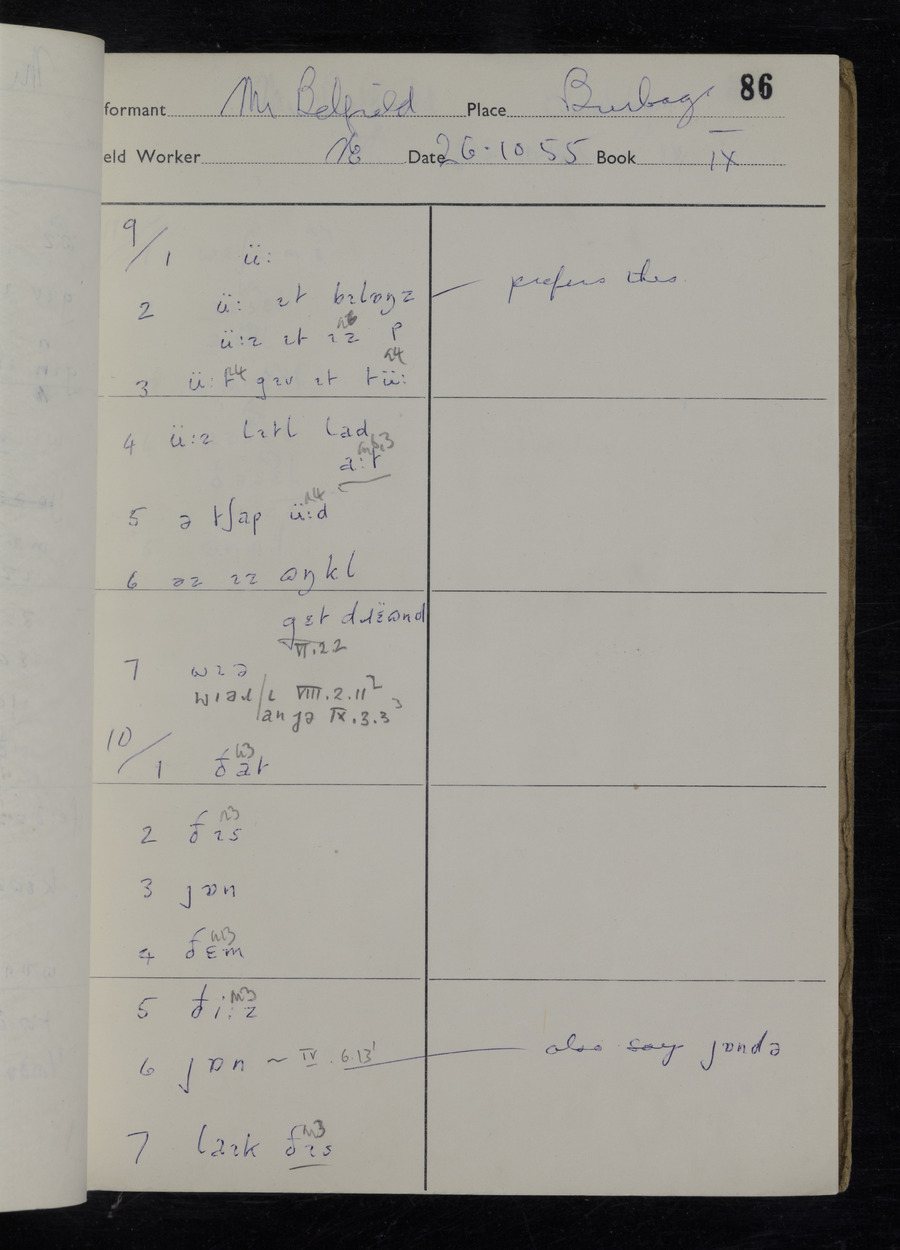 86
formant Mr Belfield Place Burbage
eld Worker Date 26.10 55 Book IX
9/1 ü:
2 ü: ɪt bɪlɒŋz prefers this
ü:z ɪt ɪz p
3 ü:t gɪv ɪt tü:
4 ü:z lɪtl lad
a:t
5 ə tʃap ü:d
6 əz ɪz ɷŋkl
gɛt dɹɛ̈ɷnd
VI.22
7 wɪə
wɪəɹ/ɩ VIII.2.11²
anjə IX.3.3³
10/1 ðat
2 ðɪs
3 jɒn
4 ðɛm
5 ði:z
6 jɒn ~ IV.6.13¹ also say jɒndə
7 laɪk ðɪs